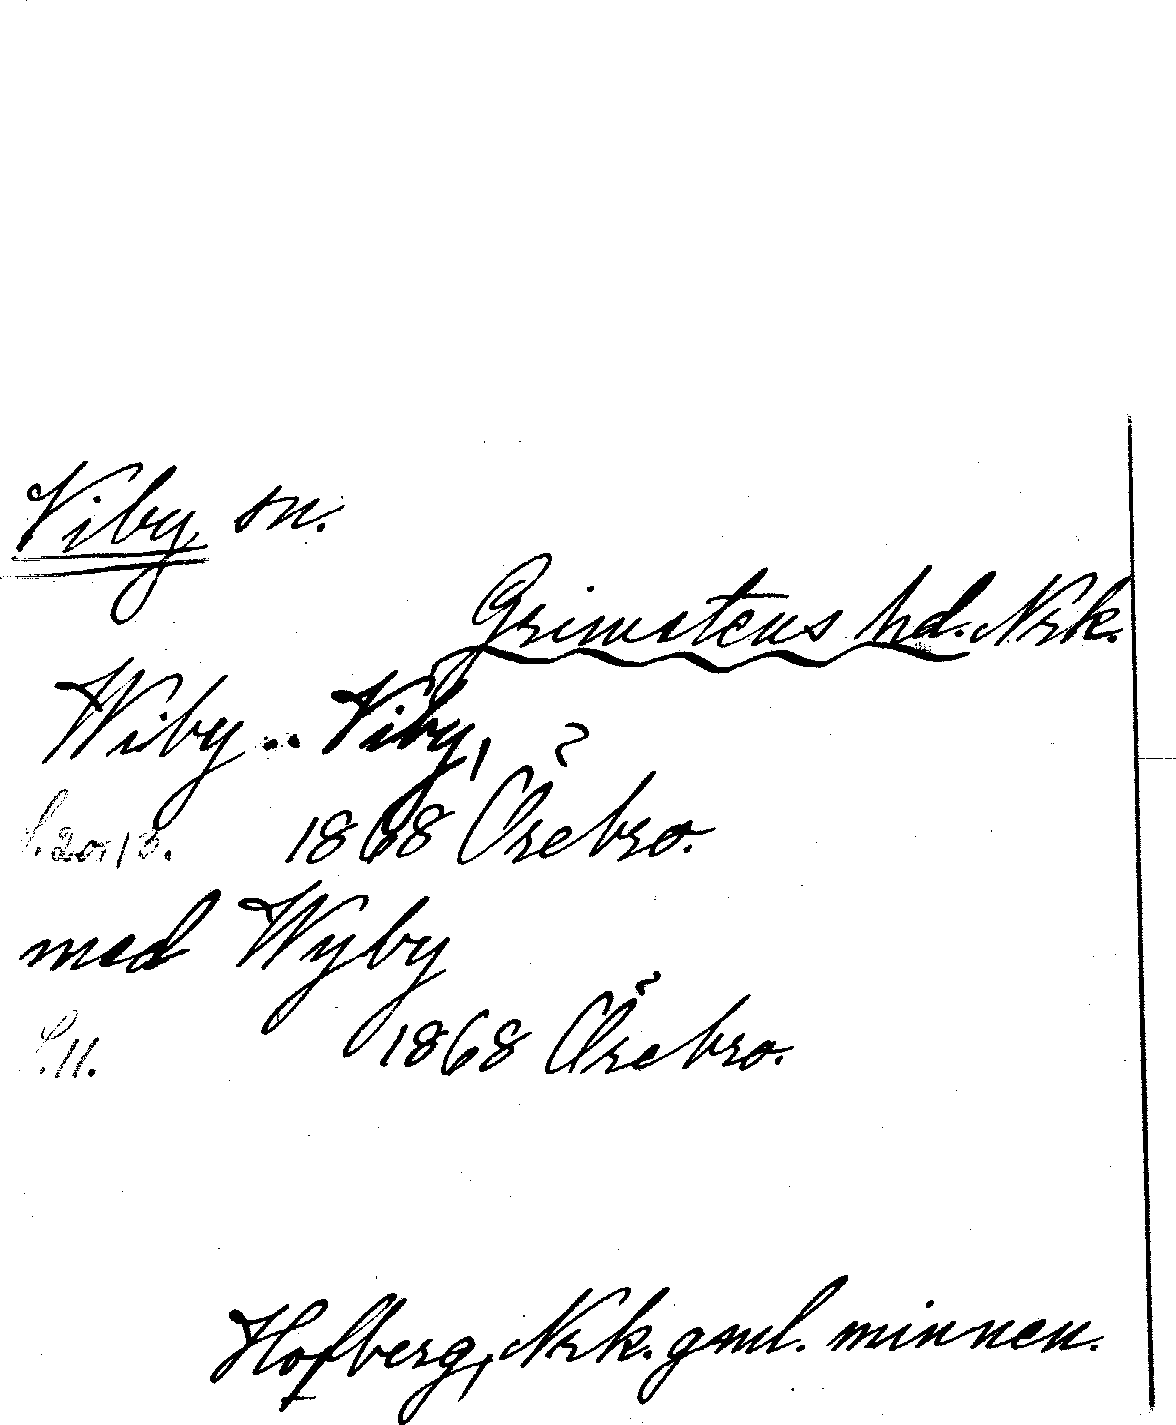 Viby sn.
Grimstens hd. Nrk.
Wiby .. Viby,
S. 20, 13. 1868 Örebro.
med Wyby
S. 11. 1868 Örebro.
Hofberg, Nrk. gml. minnen.